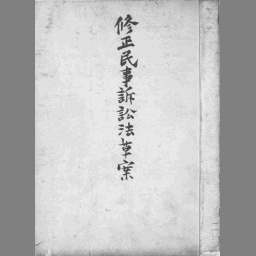 修正民事訴訟法草案